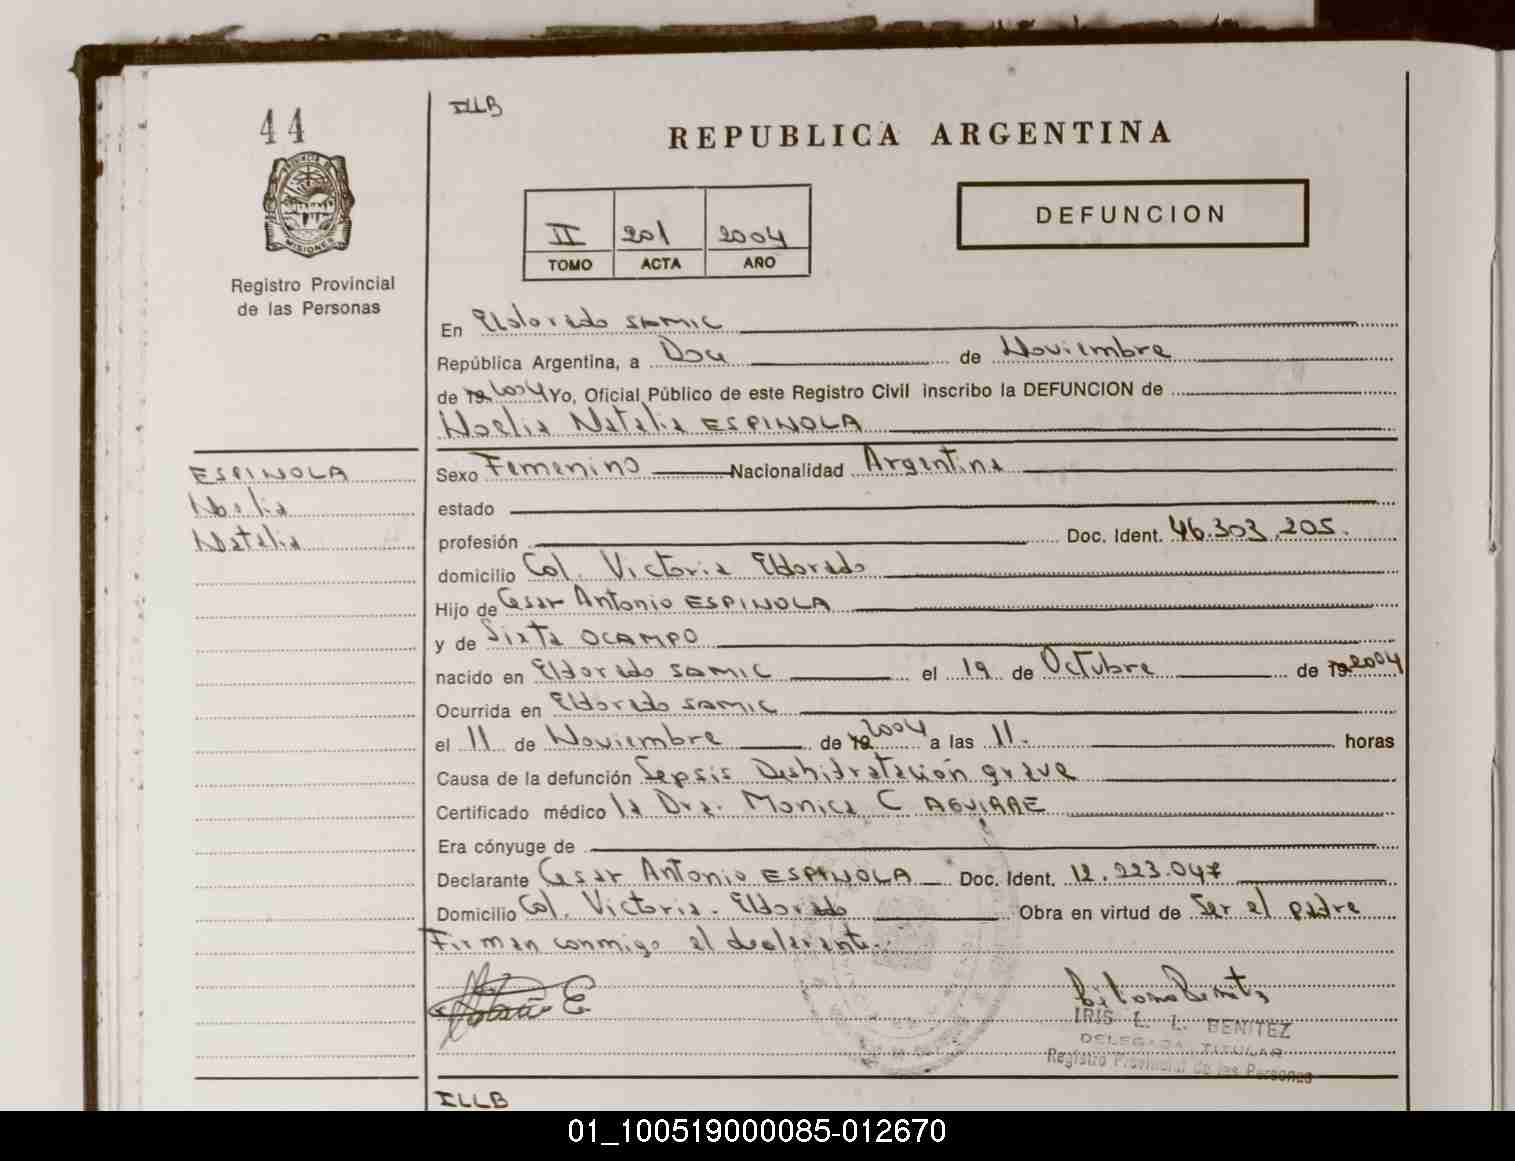 44
ILLB
REPUBLICA ARGENTINA
PROVINCIA DE MISIONES
Registro Provincial
de las Personas
II 201 2004
TOMO ACTA AÑO
DEFUNCION
En Eldorado SAMIC
República Argentina, a Doce de Noviembre
de 19 2004 Yo, Oficial Público de este Registro Civil inscribo la DEFUNCION de
Noelia Natalia ESPINOLA
ESPINOLA
Noelia
Natalia
Sexo Femenino Nacionalidad Argentina
estado
profesión Doc. Ident. 46.303.205.
domicilio Col. Victoria Eldorado
Hijo de Cesar Antonio ESPINOLA
y de Sixta OCAMPO
nacido en Eldorado SAMIC el 19 de Octubre de 19 2004
Ocurrida en Eldorado SAMIC
el 11 de Noviembre de 19 2004 a las 11. horas
Causa de la defunción Sepsis Deshidratación grave
Certificado médico la Dra. Monica C AGUIRRE
Era cónyuge de
Declarante Cesar Antonio ESPINOLA Doc. Ident. 12.223.047
Domicilio Col. Victoria. Eldorado Obra en virtud de Ser el padre
Firman conmigo el declarante.
IRIS L. L. BENITEZ
DELEGADA TITULAR
Registro Provincial de las Personas
ILLB
01_100519000085-012670